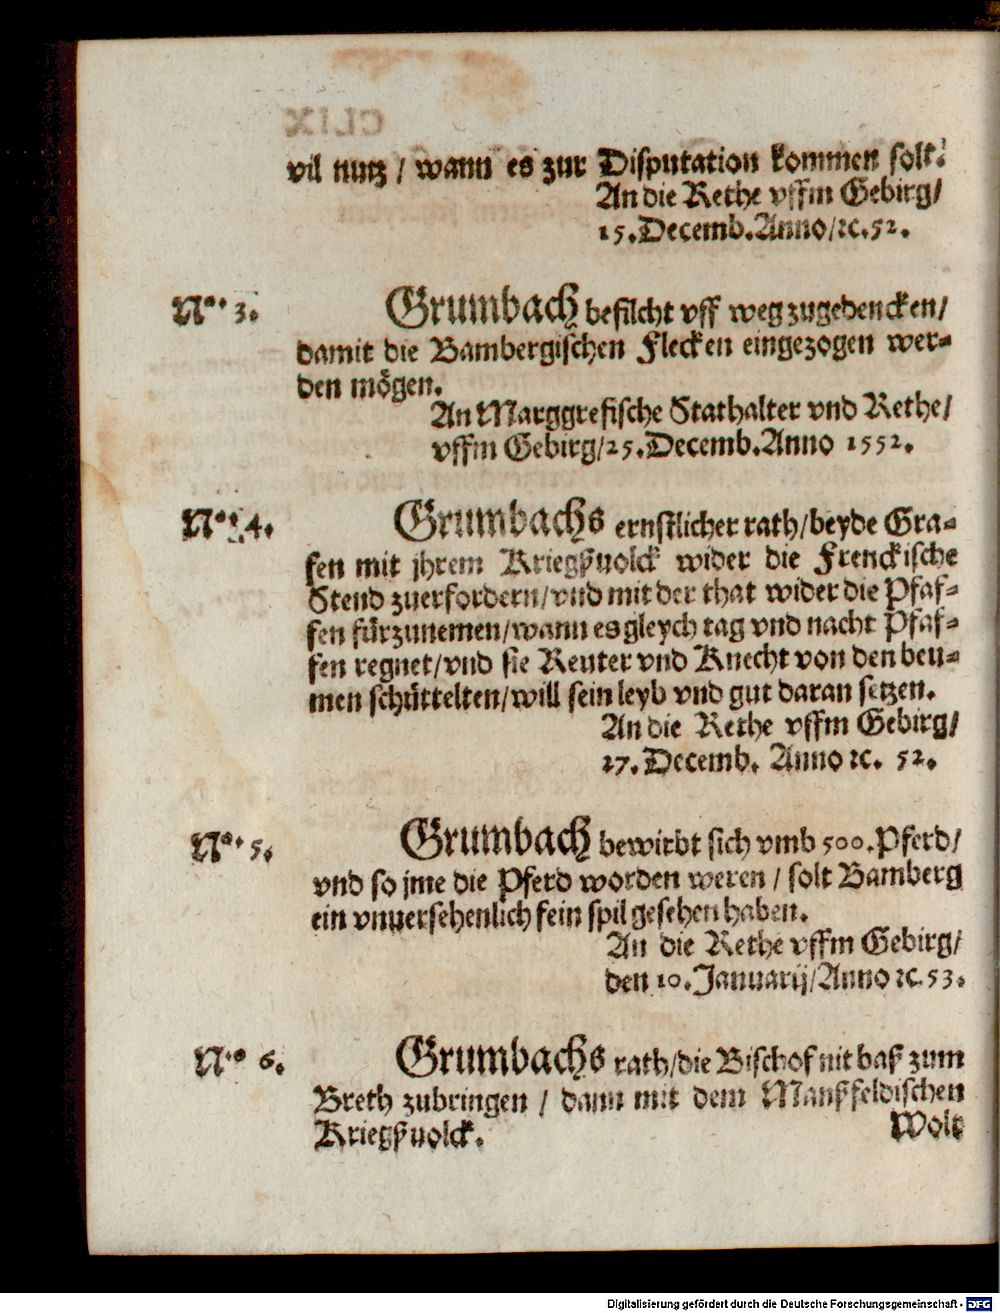 vil nutz / wann es zur Disputation kommen solt.
An die Rethe vffm Gebirg/
15. Decemb. Anno/ꝛc. 52.
No. 3. Grumbach befilcht vff weg zugedencken/
damit die Bambergischen Flecken eingezogen wer⸗
den mögen.
An Marggrefische Stathalter vnd Rethe/
vffm Gebirg/25. Decemb. Anno 1552.
No. 4. Grumbachs ernstlicher rath/beyde Gra⸗
fen mit jhrem Kriegßuolck wider die Frenckische
Stend zuerfordern/vnd mit der that wider die Pfaf⸗
fen fürzunemen/wann es gleych tag vnd nacht Pfaf⸗
fen regnet/vnd sie Reuter vnd Knecht von den beu⸗
men schüttelten/will sein leyb vnd gut daran setzen.
An die Rethe vffm Gebirg/
27. Decemb. Anno ꝛc. 52.
No. 5. Grumbach bewirbt sich vmb 500. Pferd/
vnd so jme die Pferd worden weren / solt Bamberg
ein vnuersehenlich fein spil gesehen haben.
An die Rethe vffm Gebirg/
den 10. Januarij/Anno ꝛc. 53.
No. 6. Grumbachs rath/die Bischof nit baß zum
Breth zubringen / dann mit dem Manßfeldischen
Kriegßuolck.
Wolt
Digitalisierung gefördert durch die Deutsche Forschungsgemeinschaft - DFG